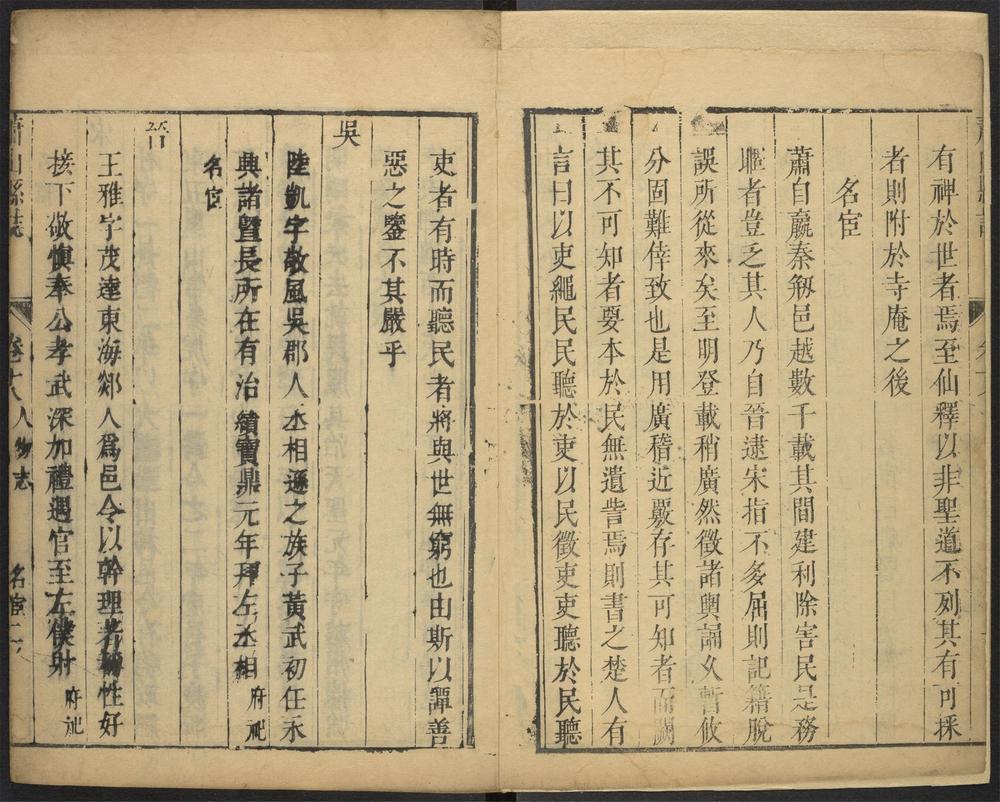 有裨於世者焉至仙釋以非聖道不列其有可採
者則附於寺庵之後
名宦
蕭自嬴秦剏邑越數千載其間建利除害民是務
者豈乏其人乃自晉逮宋指不多屈則記籍脫
誤所從來矣至明登載稍廣然徵諸輿誦久暫攸
分固難倖致也是用廣稽近覈存其可知者而闕
其不可知者要本於民無遺訾焉則書之楚人有
言曰以吏繩民民聽於吏以民徵吏吏聽於民聽
吏者有時而聽民者將與世無窮也由斯以譚善
惡之鑒不其嚴乎
吳
陸凱字敬風吳郡人丞相遜之族子黃武初任永
興諸暨長所在有治績寶鼎元年拜左丞相 府祀
名宦
王雅字茂達東海郯人爲邑令以幹理著稱性好
接下敬愼奉公孝武深加禮遇官至左僕射 府祀
蕭山縣誌 卷十八 人物志 名宦 二